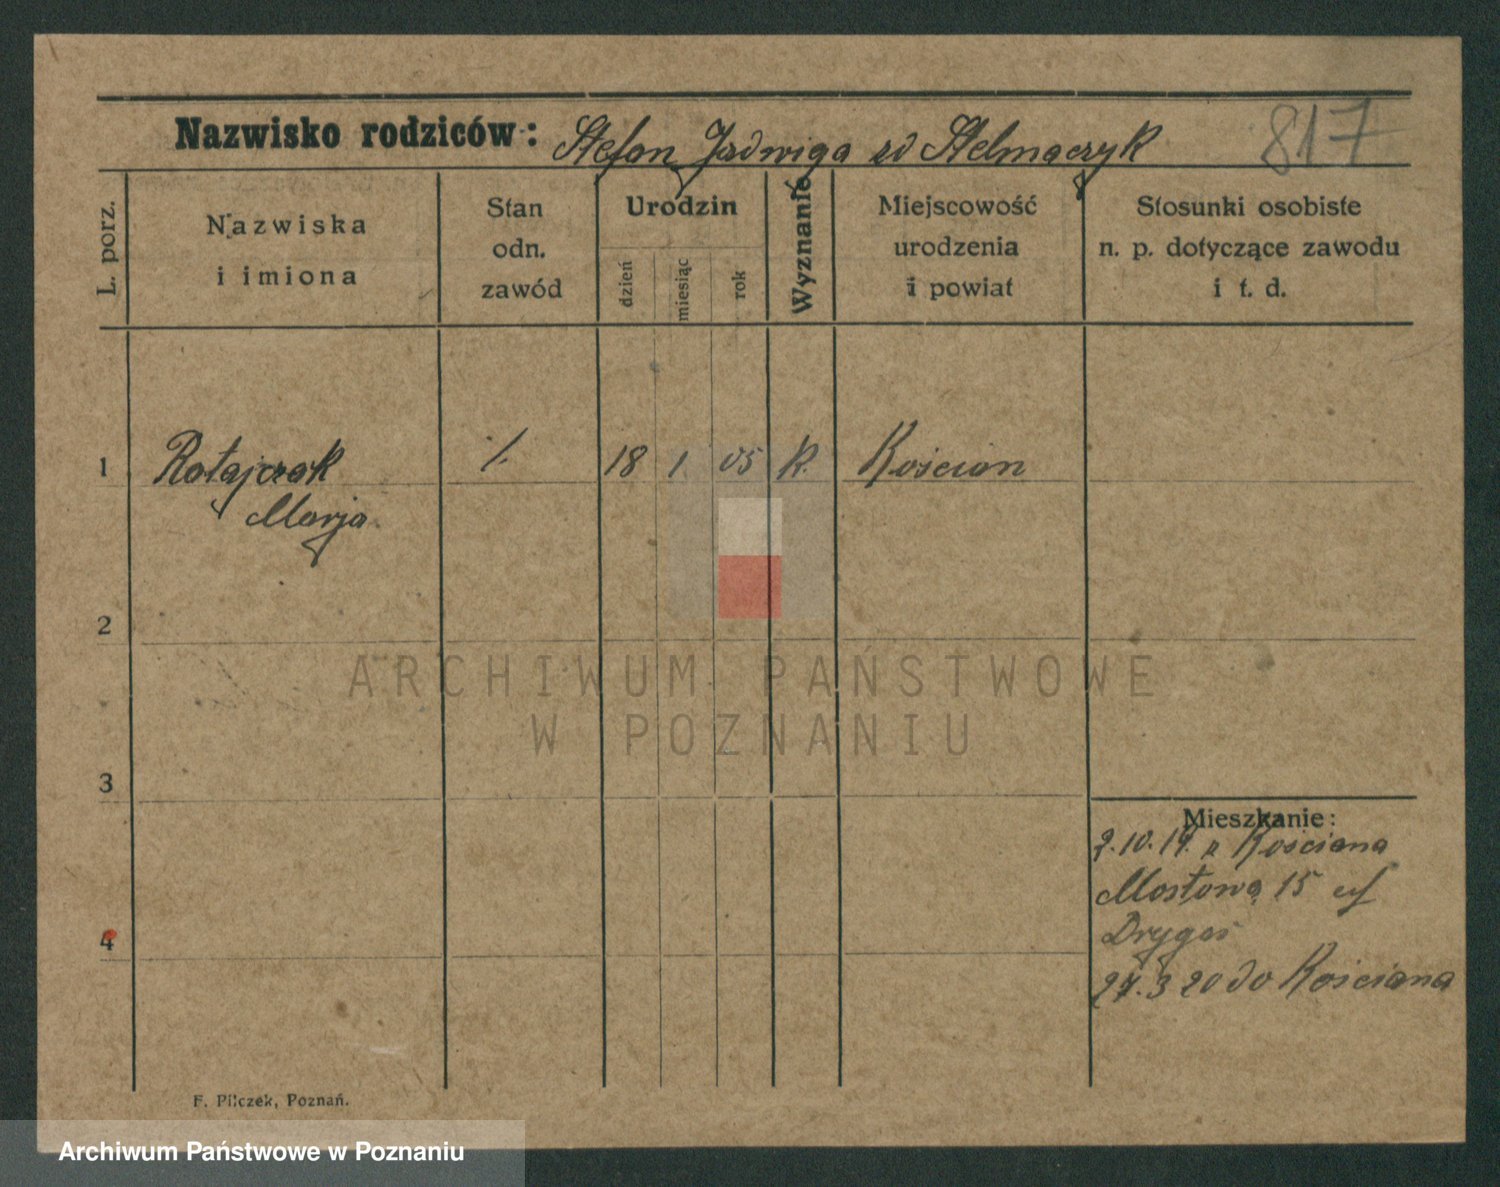 Nazwisko rodziców: Stefan, Jadwiga zd Stelmaczyk 817
L. porz.
Nazwiska
i imiona
Stan
odn.
zawód
Urodzin
dzień
miesiąc
rok
Wyznanie
Miejscowość
urodzenia
i powiat
Stosunki osobiste
n. p. dotyczące zawodu
i t. d.
1 Ratajczak 1. 18 1. 05 k. Kościan
Marja
2
ARCHIWUM PAŃSTWOWE
W POZNANIU
3
Mieszkanie:
2.10.19. z Kościana
Mostowa 15
4
Drygas
27.3 20 do Kościana
F. Pilczek, Poznań.
Archiwum Państwowe w Poznaniu